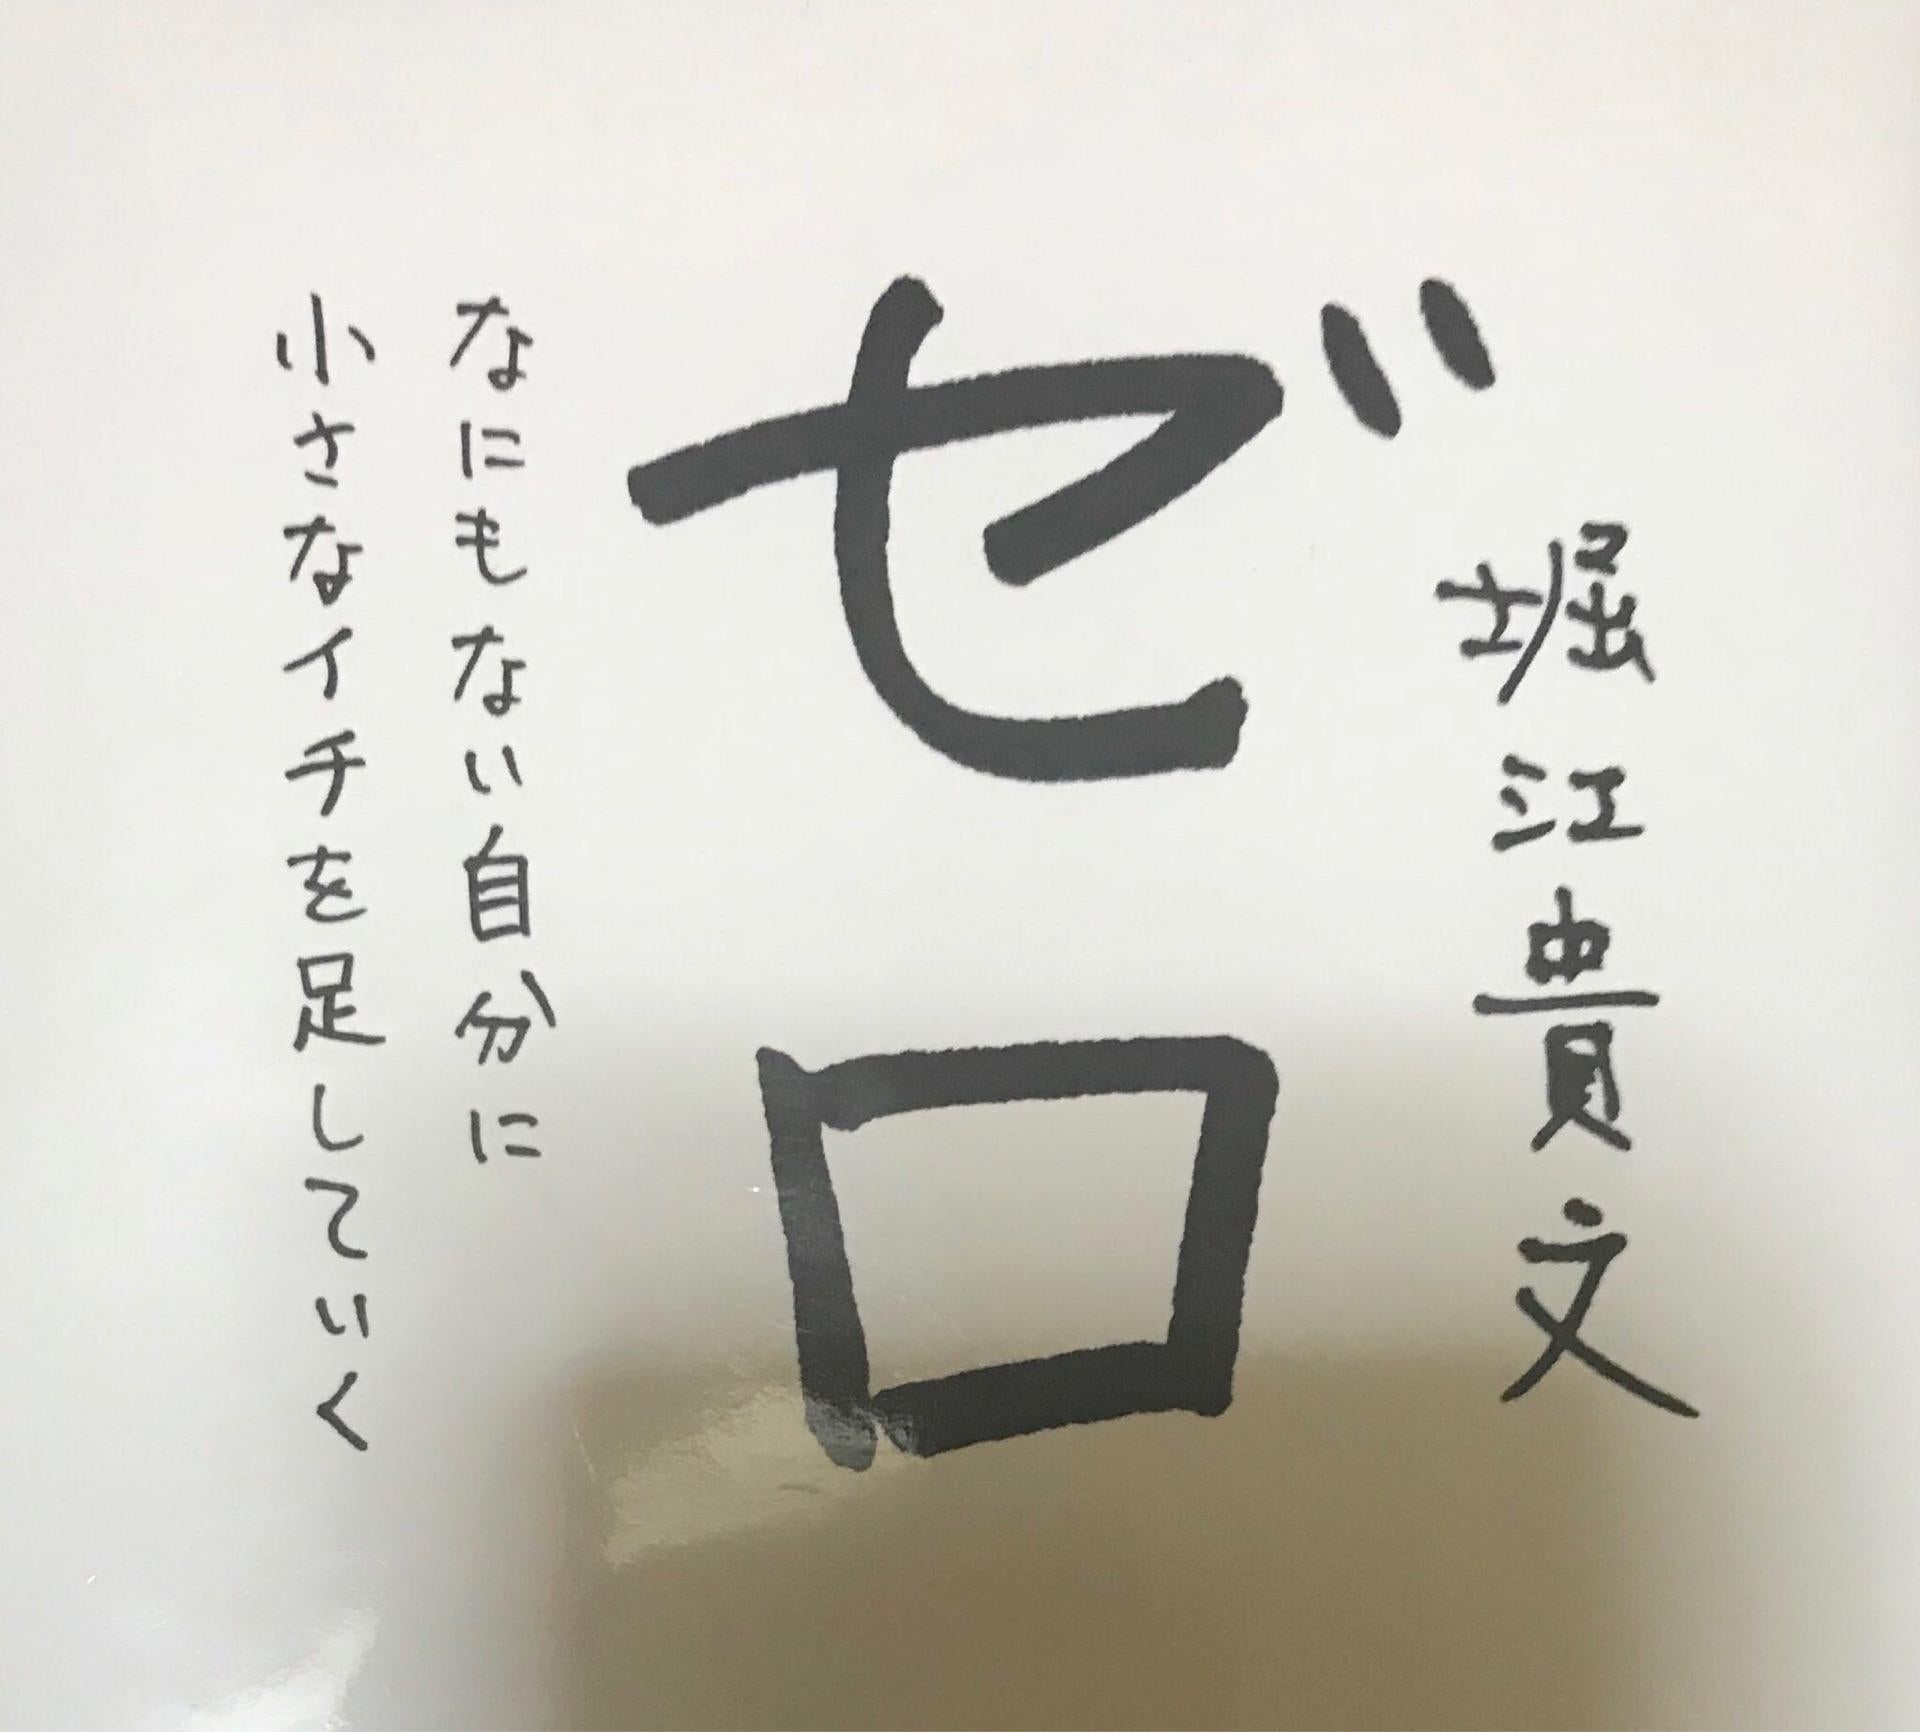 堀江貴文
ゼロ
なにもない自分に
小さなイチを足していく